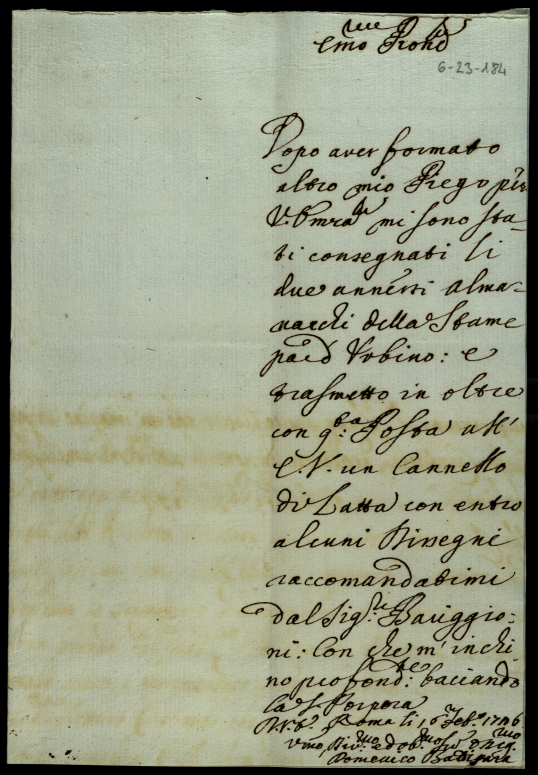 Em̃o Pron̄e
6-23-184
Dopo aver formato
altro mio Piego per
V. Emza mi sono sta-
ti consegnati li
due annessi Alma-
nacchi della Stam-
pa d'Urbino: e
trasmetto in oltre
con q.ta Posta all'
E. V. un Cannello
di Latta con entro
alcuni Dissegni
raccomandatimi
dal Sig.re Bariggio-
ni: Con che m'inchi-
no profond.te baciando
la S. Porpora
Roma li 16 Feb.o
Domenico